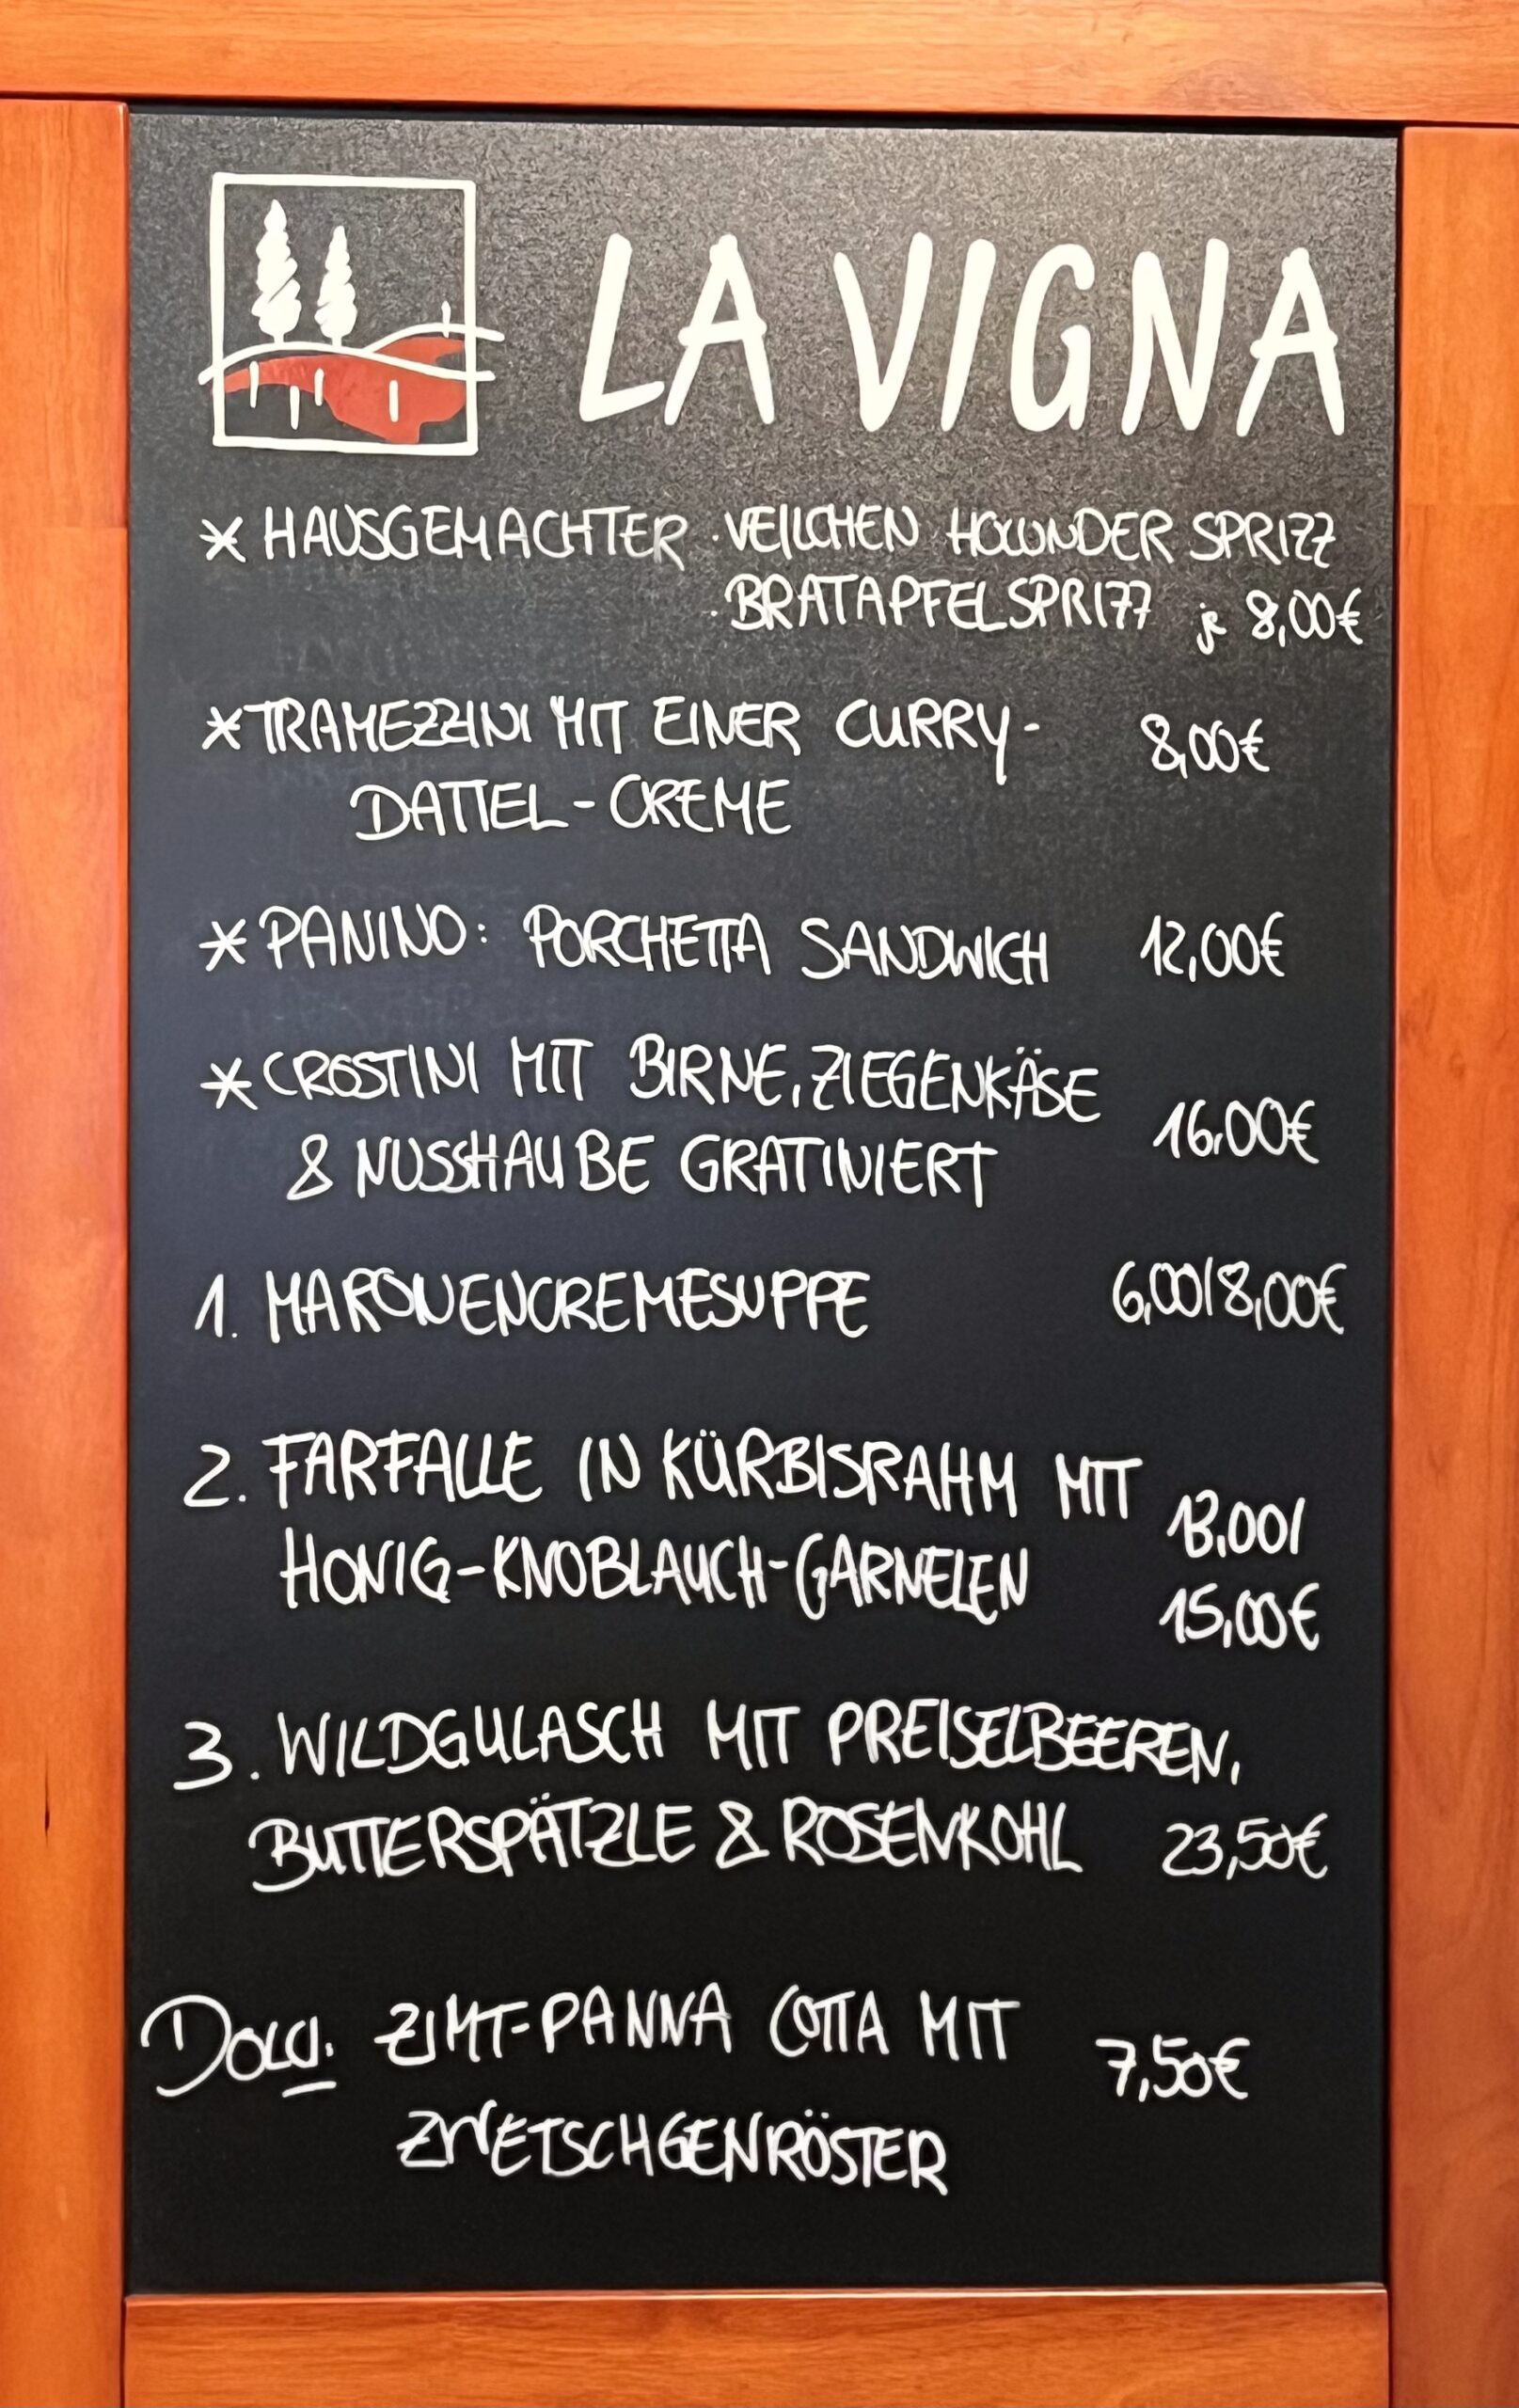 LA VIGNA
* HAUSGEMACHTER · VEILCHEN HOLUNDER SPRIZZ
· BRATAPFELSPRIZZ je 8,00€
* TRAMEZZINI MIT EINER CURRY- 8,00€
DATTEL-CREME
* PANINO: PORCHETTA SANDWICH 12,00€
* CROSTINI MIT BIRNE, ZIEGENKÄSE
& NUSSHAUBE GRATINIERT 16,00€
1. MARONENCREMESUPPE 6,00/8,00€
2. FARFALLE IN KÜRBISRAHM MIT 13,00/
HONIG-KNOBLAUCH-GARNELEN 15,00€
3. WILDGULASCH MIT PREISELBEEREN,
BUTTERSPÄTZLE & ROSENKOHL 23,50€
DOLCI: ZIMT-PANNA COTTA MIT 7,50€
ZWETSCHGENRÖSTER